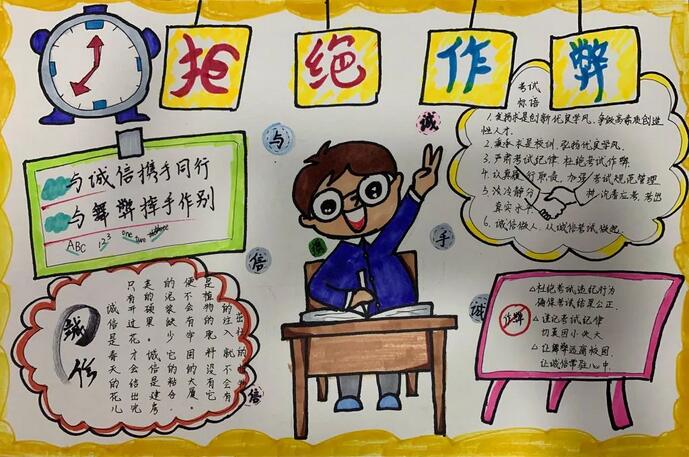 拒绝作弊
与诚信携手同行
与舞弊挥手作别
ABC 123 one two
考试
标语
1.发扬求是创新优良学风,争做高素质创造
性人才。
2.秉承求是校训,弘扬优良学风。
3.严肃考试纪律 杜绝考试作弊
4.认真履行职责,加强考试规范管理
沉着应考,考出
真实水平
6.诚信做人,从诚信考试做起
与
诚
信
携
手
诚
信
诚信
诚信是春天的花儿
只有开过花才会结出
是的硕果。诚信是建房
的泥浆缺少它的粘合
便不会有牢固的大厦。
是植物的肥料没有它
的注入就不会有
△杜绝考试违纪行为
确保考试结果公正.
作弊
△谨记考试纪律
切莫因小失大
△让舞弊远离校园
让诚信常驻心中.